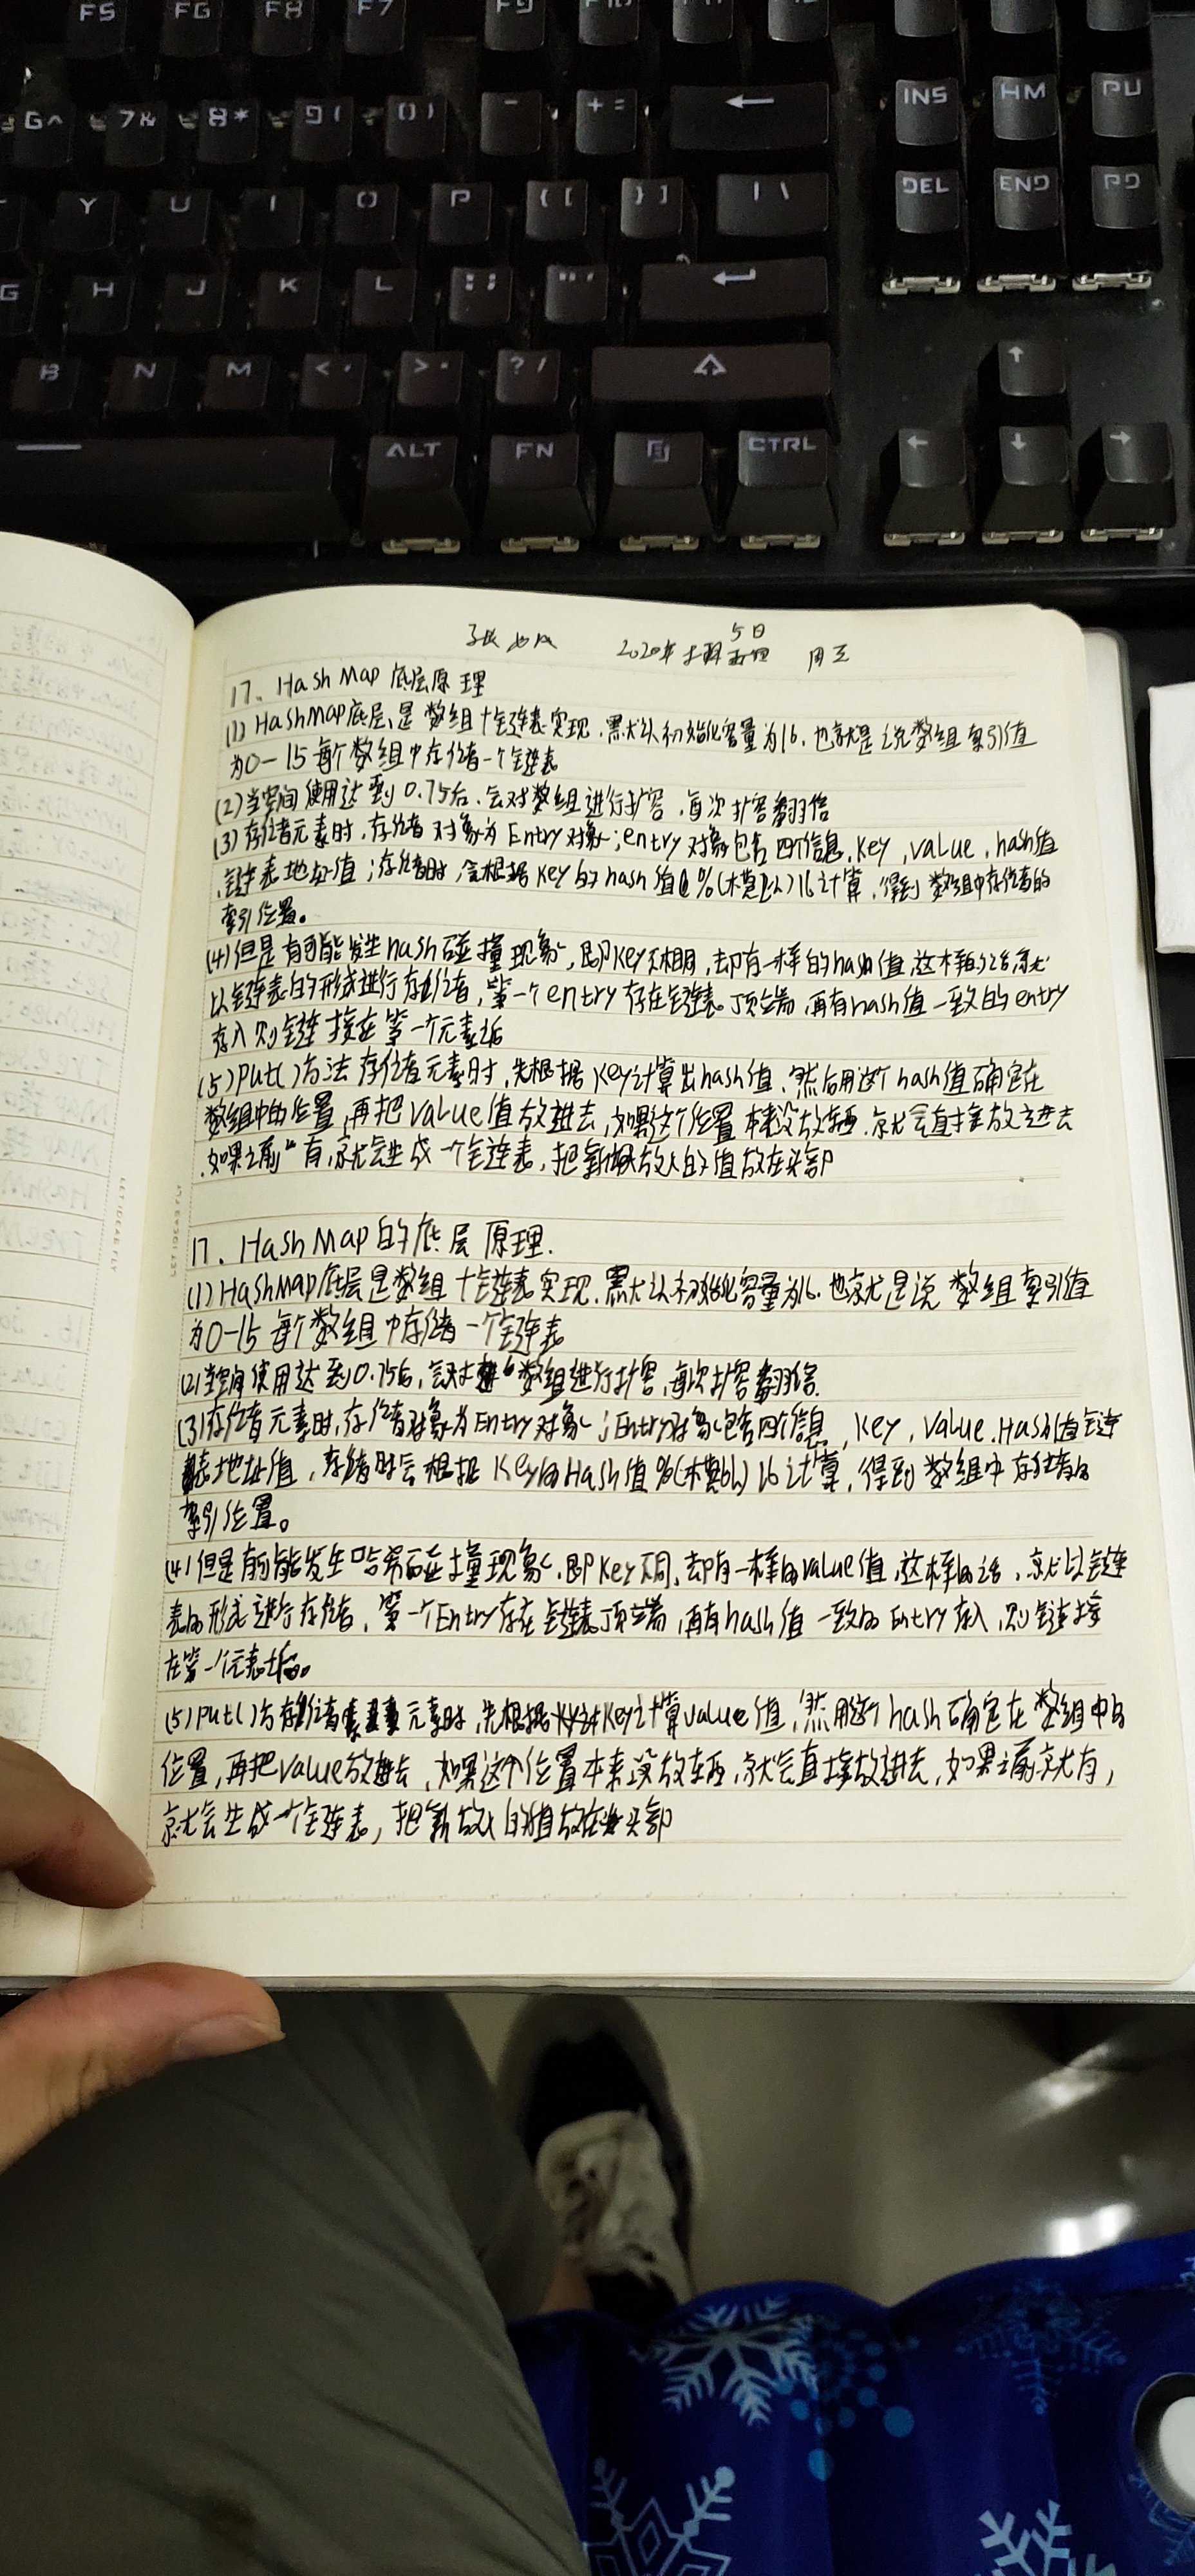 F5 F6 F8 F7 F9 F10 F11
6^ 7& 8* 9( 0) - += ← INS HM PU
Y U I O P {[ }] |\ DEL END PD
G H J K L :; "'
B N M <, >. ?/ ↑
ALT FN CTRL ← ↓ →
5日
2020年 周三
17、HashMap底层原理
(1) HashMap底层是数组+链表实现.默认初始化容量为16.也就是说数组索引值
为0-15每个数组中存储着一个链表
(2)当空间使用达到0.75后.会对数组进行扩容.每次扩容翻倍
(3)存储元素时,存储对象为Entry对象;entry对象包含四个信息,key,value,hash值
,链表地址值;存储时,会根据key的hash值%(模以)16计算,得到数组中存储的
索引位置。
(4)但是有可能发生hash碰撞现象,即key不相同,却有一样的hash值,这样的话,就
以链表的形式进行存储,第一个entry存在链表顶端,再有hash值一致的entry
存入则链接在第一个元素后
(5)put()方法存储元素时,先根据key计算出hash值,然后用这个hash值确定在
数组中的位置,再把value值放进去,如果这个位置本来没放东西.就会直接放进去
.如果之前有,就会生成一个链表,把新放入的值放在头部
17、HashMap的底层原理.
(1)HashMap底层是数组+链表实现.默认初始化容量为16.也就是说数组索引值
为0-15每个数组中存储一个链表
(2)当空间使用达到0.75后,会对数组进行扩容,每次扩容翻倍.
(3)存储元素时,存储对象为Entry对象;Entry对象包含四个信息,key,value.Hash值链
表地址值,存储时会根据key的Hash值%(模以)16计算,得到数组中存储的
索引位置。
(4)但是有可能发生哈希碰撞现象,即key不同,却有一样的value值,这样的话,就以链
表的形式进行存储,第一个Entry存在链表顶端,再有hash值一致的Entry存入,则链接
在第一个元素后。
(5)put()方存储元素时,先根据key计算value值,然用这个hash确定在数组中的
位置,再把value放进去,如果这个位置本来没放东西,就会直接放进去,如果之前就有,
就会生成一个链表,把新放入的值放在头部